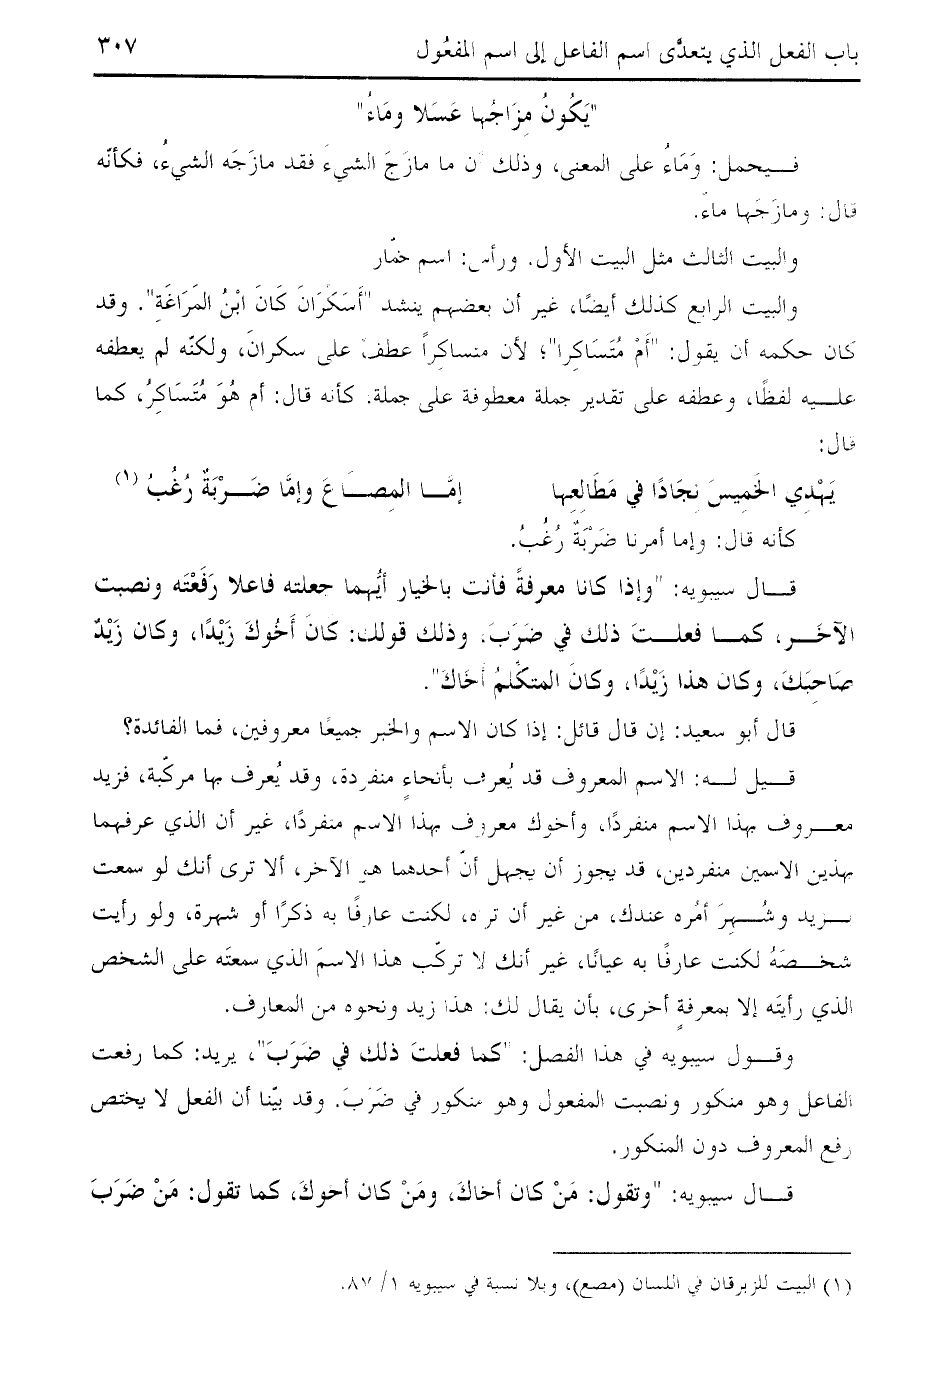 باب الفعل الذي يتعدَّى اسم الفاعل إلى اسم المفعُول ٣٠٧
"يَكُونُ مِزَاجُها عَسَلا ومَاءُ"
فـيحمل: وَمَاءُ على المعنى، وذلك أن ما مازَجَ الشيءَ فقد مازجَه الشيءُ، فكأنّه
قال: ومازَجَها ماء.
والبيت الثالث مثل البيت الأول. ورأس: اسم خمّار
والبيت الرابع كذلك أيضًا، غير أن بعضهم ينشد "أَسَكَرَانَ كَانَ ابْنُ المَرَاغَةِ". وقد
كان حكمه أن يقول: "أَمْ مُتَسَاكِرا"؛ لأن متساكراً عطف على سكران، ولكنّه لم يعطفه
علـــيه لفظًا، وعطفه على تقدير جملة معطوفة على جملة. كأنه قال: أم هُوَ مُتَسَاكِرُ، كما
قال:
يَهْدِي الخَمِيسَ نجَادًا في مَطَالِعِها إمَّـــا المِصَـــاعَ وإمَّا ضَـــرْبَةٌ رُغُبُ (١)
كأنه قال: وإما أمرنا ضَرْبَةٌ رُغُبُ.
قـــال سيبويه: "وإذا كانا معرفةً فأنت بالخيار أيُّهما جعلته فاعلا رَفَعْتَه ونصبت
الآخَـــر، كمـــا فعلـــتَ ذلك في ضَرَبَ. وذلك قولك: كَانَ أَخُوكَ زَيْدًا، وكان زَيْدٌ
صَاحِبَكَ، وكان هذا زَيْدًا، وكَانَ المتكَلِّمُ أَخَاكَ".
قال أبو سعيد: إن قال قائل: إذا كان الاسم والخبر جميعًا معروفين، فما الفائدة؟
قـــيل لـــه: الاسم المعروف قد يُعرف بأنحاءٍ منفردة، وقد يُعرف بها مركّبة، فزيد
معـــروف بهذا الاسم منفردًا، وأخوك معروف بهذا الاسم منفردًا، غير أن الذي عرفهما
بهذين الاسمين منفردين، قد يجوز أن يجهل أنّ أحدهما هو الآخر، ألا ترى أنك لو سمعت
بـــزيد وشُـــهِرَ أمُره عندك، من غير أن تره، لكنت عارفًا به ذكرًا أو شهرة، ولو رأيت
شخـــصَهُ لكنت عارفًا به عيانًا، غير أنك لا تركّب هذا الاسمَ الذي سمعتَه على الشخص
الذي رأيتَه إلا بمعرفةٍ أخرى، بأن يقال لك: هذا زيد ونحوه من المعارف.
وقـــول سيبويه في هذا الفصل: "كما فعلتَ ذلك في ضَرَبَ"، يريد: كما رفعت
الفاعل وهو منكور ونصبت المفعول وهو منكور في ضَرَبَ. وقد بيّنا أن الفعل لا يختص
رفع المعروف دون المنكور.
قـــال سيبويه: "وتقول: مَنْ كان أخاكَ، ومَنْ كان أخوكَ، كما تقول: مَنْ ضَرَبَ
(١) البيت للزبرقان في اللسان (مصع)، وبلا نسبة في سيبويه ١/ ٨٧.